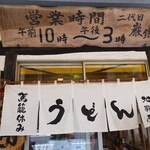 営業時間
午前10時〜午後3時
二代目
うどん
駕籠休み